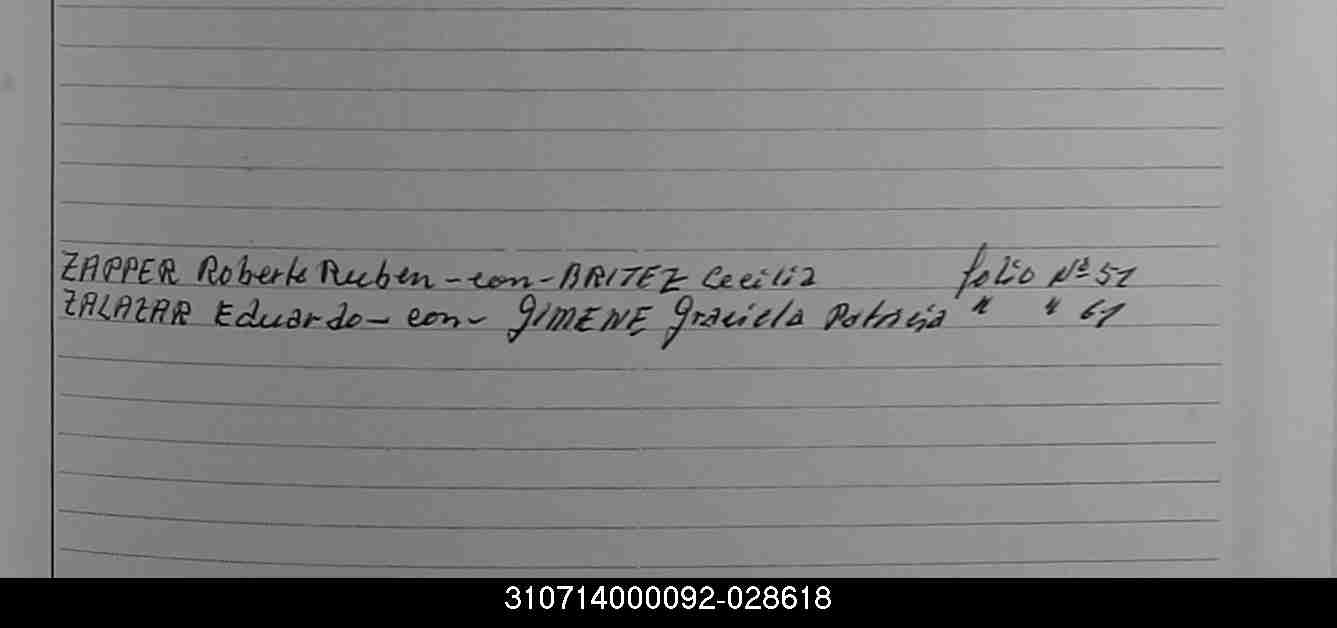 ZAPPER Roberto Ruben - con - BRITEZ Cecilia folio Nº 51
ZALAZAR Eduardo - con - GIMENE Graciela Patricia " " 61
310714000092-028618